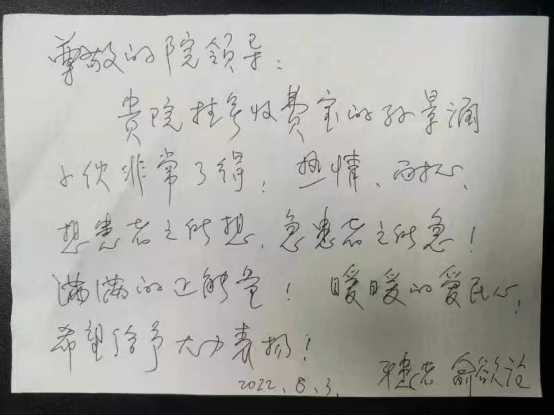 尊敬的院领导：
贵院挂号收费室的孙景涌
小伙非常了得！热情、耐心、
想患者之所想，急患者之所急！
满满的正能量！暖暖的爱民心，
希望给予大力表扬！
患者
2022.8.3.